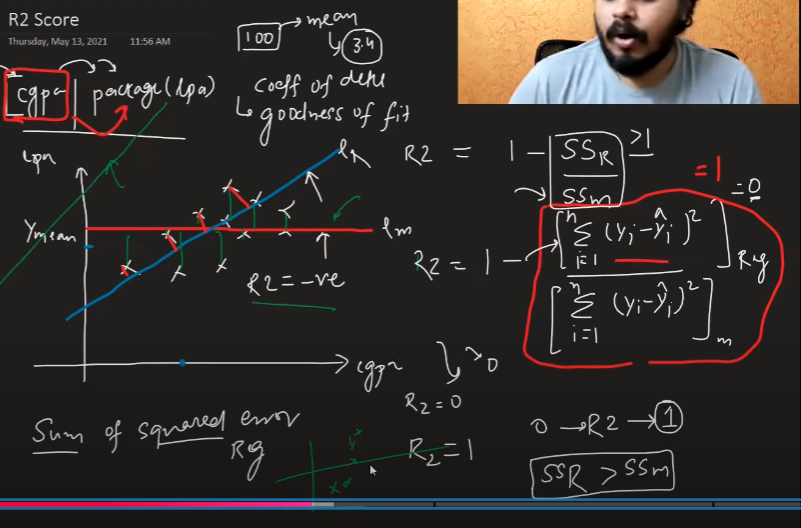 R2 Score
Thursday, May 13, 2021 11:56 AM
100 → mean
3.4
cgpa | package(lpa)
coeff of dete
↳ goodness of fit
lpa
lR
R2 = 1 - SSR / SSm
>1
= 1
= 0
Ymean
lm
R2 = 1 - [ n Σ i=1 (yi - ŷi)² ] Reg
[ n Σ i=1 (yi - ŷi)² ] m
R2 = -ve
cgpa
0
R2 = 0
Sum of squared error
Reg
R2 = 1
0 → R2 → 1
SSR > SSm